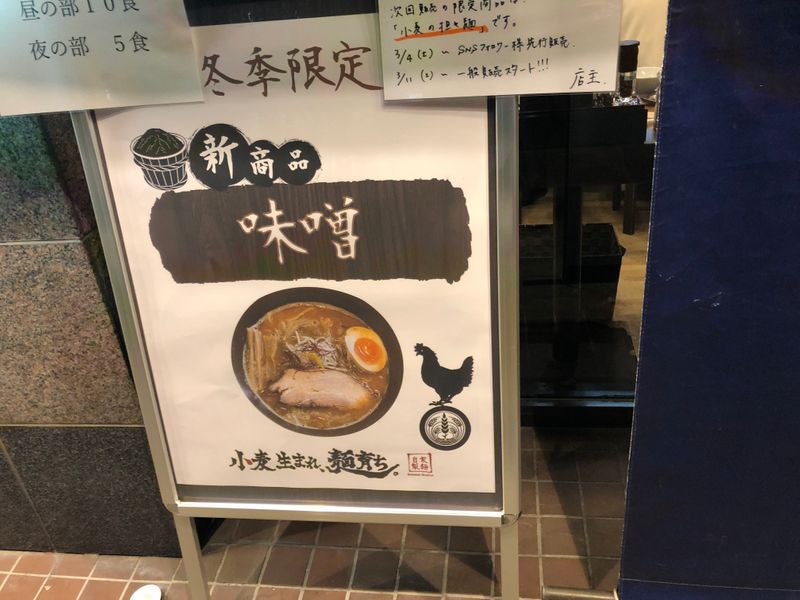 昼の部 10食
夜の部 5食
次回販売の限定商品は、
「小麦の担々麺」です。
3/4(土)~ SNSフォロワー様先行販売。
3/11(土)~ 一般販売スタート!!!
店主.
冬季限定
新商品
味噌
小麦生まれ、麺育ち。
自家製麺